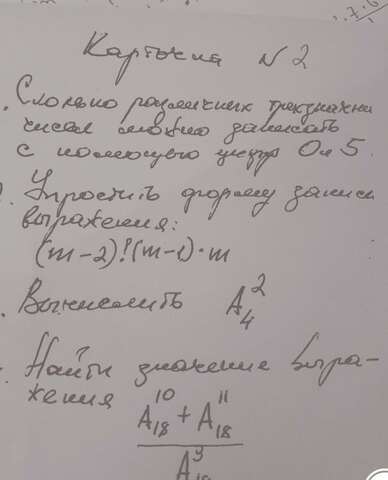 Карточка N2
Сколько различных трехзначн
чисел можно записать
с помощью цифр 0 и 5.
Упростить форму записи
выражения:
(m-2)!(m-1)·m
Вычислить A₄²
Найти значение выра-
жения
A₁₈¹⁰ + A₁₈¹¹